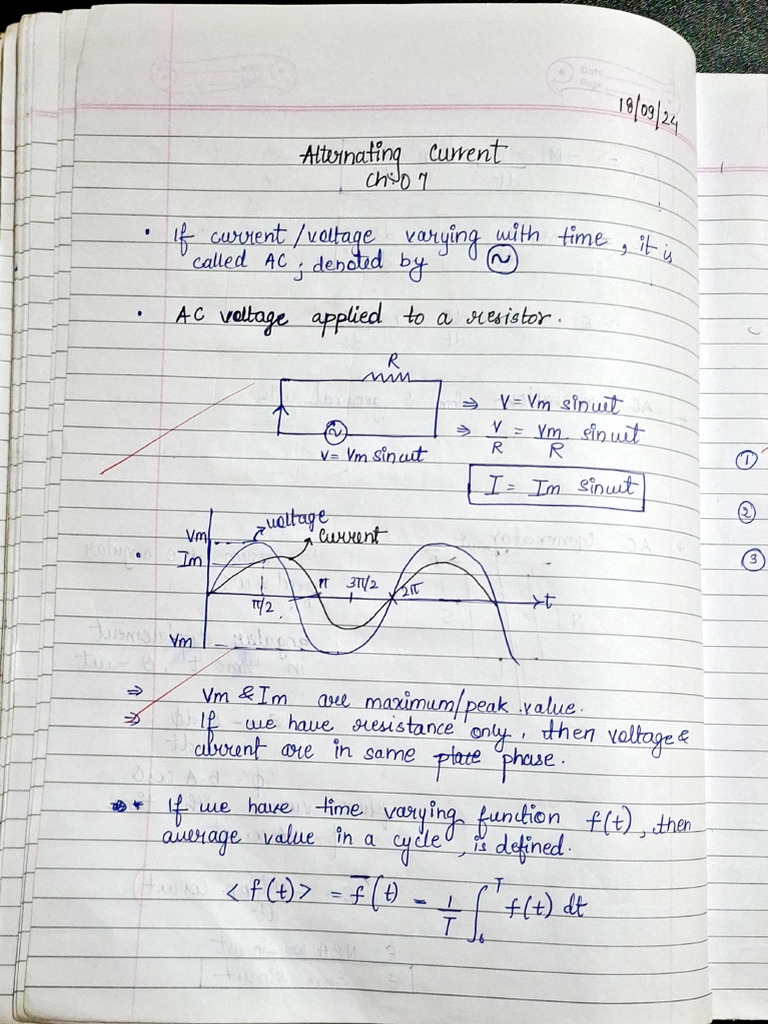 18/09/24
Alternating Current
Ch:-07
• If current/voltage varying with time, it is
called AC; denoted by ~
• AC voltage applied to a resistor.
R
⇒ V = Vm sinωt
⇒ V/R = Vm/R sinωt
V = Vm sinωt
I = Im sinωt
voltage
Vm
current
Im
π/2 π 3π/2 2π t
Vm
⇒ Vm & Im are maximum/peak value.
⇒ If we have resistance only, then voltage &
current are in same phase.
* If we have time varying function f(t), then
average value in a cycle, is defined.
<f(t)> = f̅(t) = 1/T ∫₀ᵀ f(t) dt
①
②
③